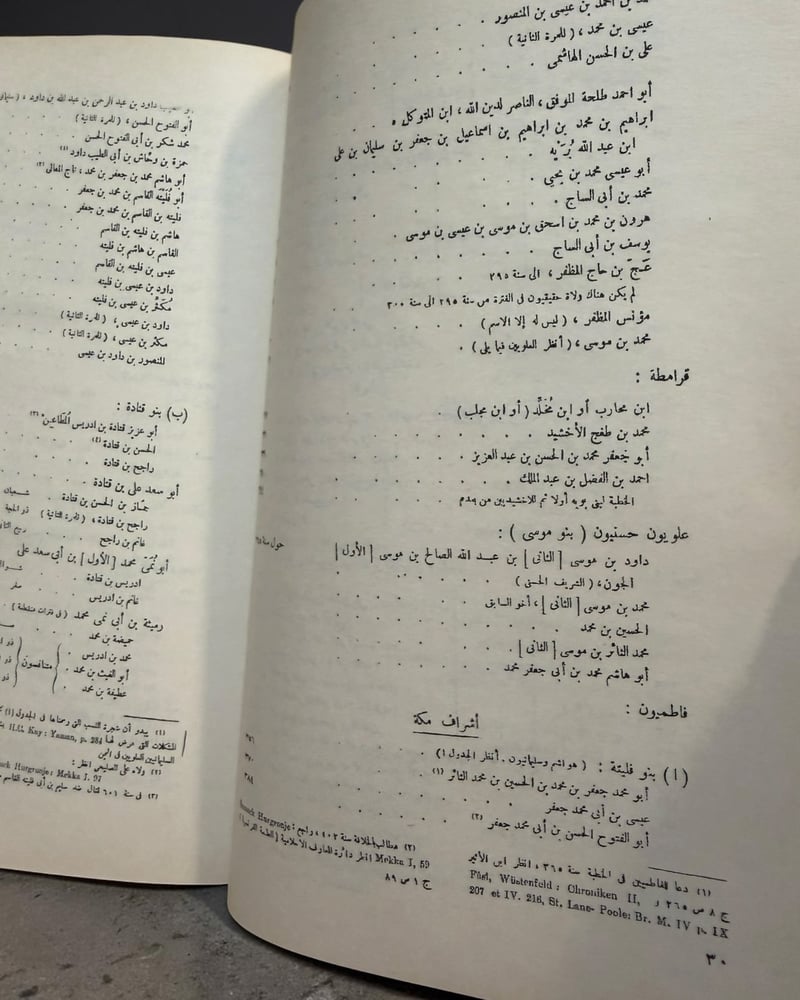 محمد بن أحمد بن عيسى بن المنصور
عيسى بن محمد ، ( للمرة الثانية )
على بن الحسن الهاشمى
أبو احمد طلحة الموفق ، الناصر لدين الله ، ابن المتوكل
ابراهيم بن محمد بن ابراهيم بن اسماعيل بن جعفر بن سليمان بن على
ابن عبد الله بُرَيْه
أبو عيسى محمد بن يحيى
محمد بن أبى الساج
هرون بن محمد بن اسحق بن موسى بن عيسى بن موسى
يوسف بن أبى الساج
عَجّ بن حاج المظفر ، الى سنة ٢٩٥
لم يكن هناك ولاة حقيقيون فى الفترة من سنة ٢٩٥ الى سنة ٣٠٠
مؤنس المظفر ، ( ليس له إلا الاسم )
محمد بن موسى ، ( أنظر العلويين فيما يلى ) .
قرامطة :
ابن محارب أو ابن مُخَلَّد ( أو ابن مجلب )
محمد بن طغج الأخشيد
أبو جعفر محمد بن الحسن بن عبد العزيز
احمد بن الفضل بن عبد الملك
الخطبة لبنى بويه أولا ثم للاخشيديين من بعدهم
علويون حسنيون ( بنو موسى ) :
داود بن موسى [ الثانى ] بن عبد الله الصالح بن موسى [ الأول ]
الجون ، ( الشريف الحسنى )
محمد بن موسى [ الثانى ] ، أخو السابق
الحسين بن محمد
محمد الثائر بن موسى [ الثانى ] .
أبو هاشم محمد بن أبى جعفر محمد
فاطميون :
أشراف مكة
( ا ) بنو فليتة : ( هواشم وسليمانيون . أنظر الجدول ١ )
أبو محمد جعفر بن محمد بن الحسين بن محمد الثائر (١)
عيسى بن أبى محمد جعفر
أبو الفتوح الحسن بن أبى محمد جعفر (٢)
(١) دعا للفاطميين فى الخطبة سنة ٣٦٥ ، انظر ابن الأثير
ج ٨ ص ٢٦٥ و
Fâsî, Wüstenfeld : Chroniken II,
207 et IV. 216, St. Lane- Poole: Br. M. IV p. IX
(٢) مطالب الخلافة سنة ٤٠٢ ، راجع : Snouck Hurgronje
Mekka I, 59 انظر دائرة المعارف الاسلامية ( الطبعة الفرنسية )
ج ١ ص ٨٩
٣٠
داود بن عبد الرحمن بن عبد الله بن داود
أبو الفتوح الحسن ، ( للمرة الثانية )
محمد شكر بن أبى الفتوح الحسن
حمزة بن وهّاس بن أبى الطيب داود (١)
أبو هاشم محمد بن جعفر بن محمد ، تاج المعالى (٢)
أبو فُلَيْتَه القاسم بن محمد بن جعفر
فليته بن القاسم بن محمد بن جعفر
هاشم بن فليته بن القاسم
القاسم بن هاشم بن فليته
عيسى بن فليته بن القاسم
داود بن عيسى بن فليته
مُكَثِّر بن عيسى بن فليته
داود بن عيسى ، ( للمرة الثانية )
مكثر بن عيسى ، ( للمرة الثانية )
المنصور بن داود بن عيسى
(ب) بنو قتادة :
أبو عزيز قتادة بن ادريس المُطَاعِن (٣)
الحسن بن قتادة (٤)
راجح بن قتادة
أبو سعد على بن قتادة
جمّاز بن الحسن بن قتادة
راجح بن قتادة ، ( للمرة الثانية )
غانم بن راجح
أبو نُمَىّ محمد [ الأول ] بن أبى سعد على
ادريس بن قتادة
غانم بن ادريس
رميثة بن أبى نمى محمد ( فى فترات متقطعة )
حميضة بن محمد
محمد بن ادريس
أبو الغيث بن محمد
عطيفة بن محمد
متنافسون
(١) يبدو أن شجرة النسب التى رسمناها فى الجدول
المشكلات التى عرض لها H.C. Kay : Yaman, p. 284
السليمانيين العلويين فى اليمن
(٢) ولاه على الصليحى انظر :
Hurgronje: Mekka I, 97
(٣) فى سنة ٦٠١